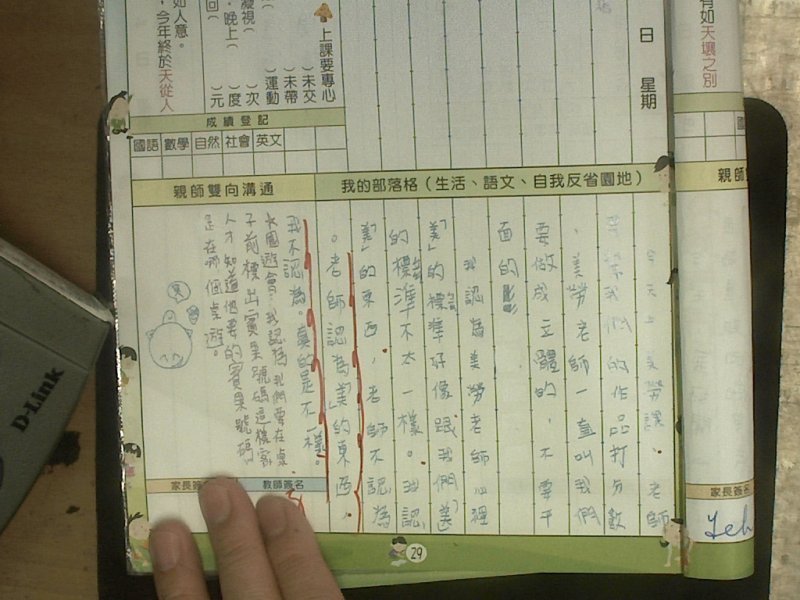 有如天壤之別
日 星期
上課要專心
( )未交
( )未帶
( )運動
( )次
( )度
( )元
凝視
、晚上
回
如人意。
，今年終於天從人
成績登記
國語 數學 自然 社會 英文
我的部落格（生活、語文、自我反省園地）
親師雙向溝通
今天上美勞課，老師
我們的作品打分數
，美勞老師一直叫我們
要做成立體的，不要平
面的
我認為美勞老師心裡
「美」的標準好像跟我們「美」
的標準不太一樣。我認為
「美」的東西，老師不認為
。老師認為「美」的東西，
我不認為。真的是不一樣。
園遊會：我認為我們要在桌
子前標出賓果號碼這樣客
人才知道他要的賓果號碼
是在哪個桌遊。
家長簽
教師簽名
家長簽名
親師
29
D-Link
Yeh